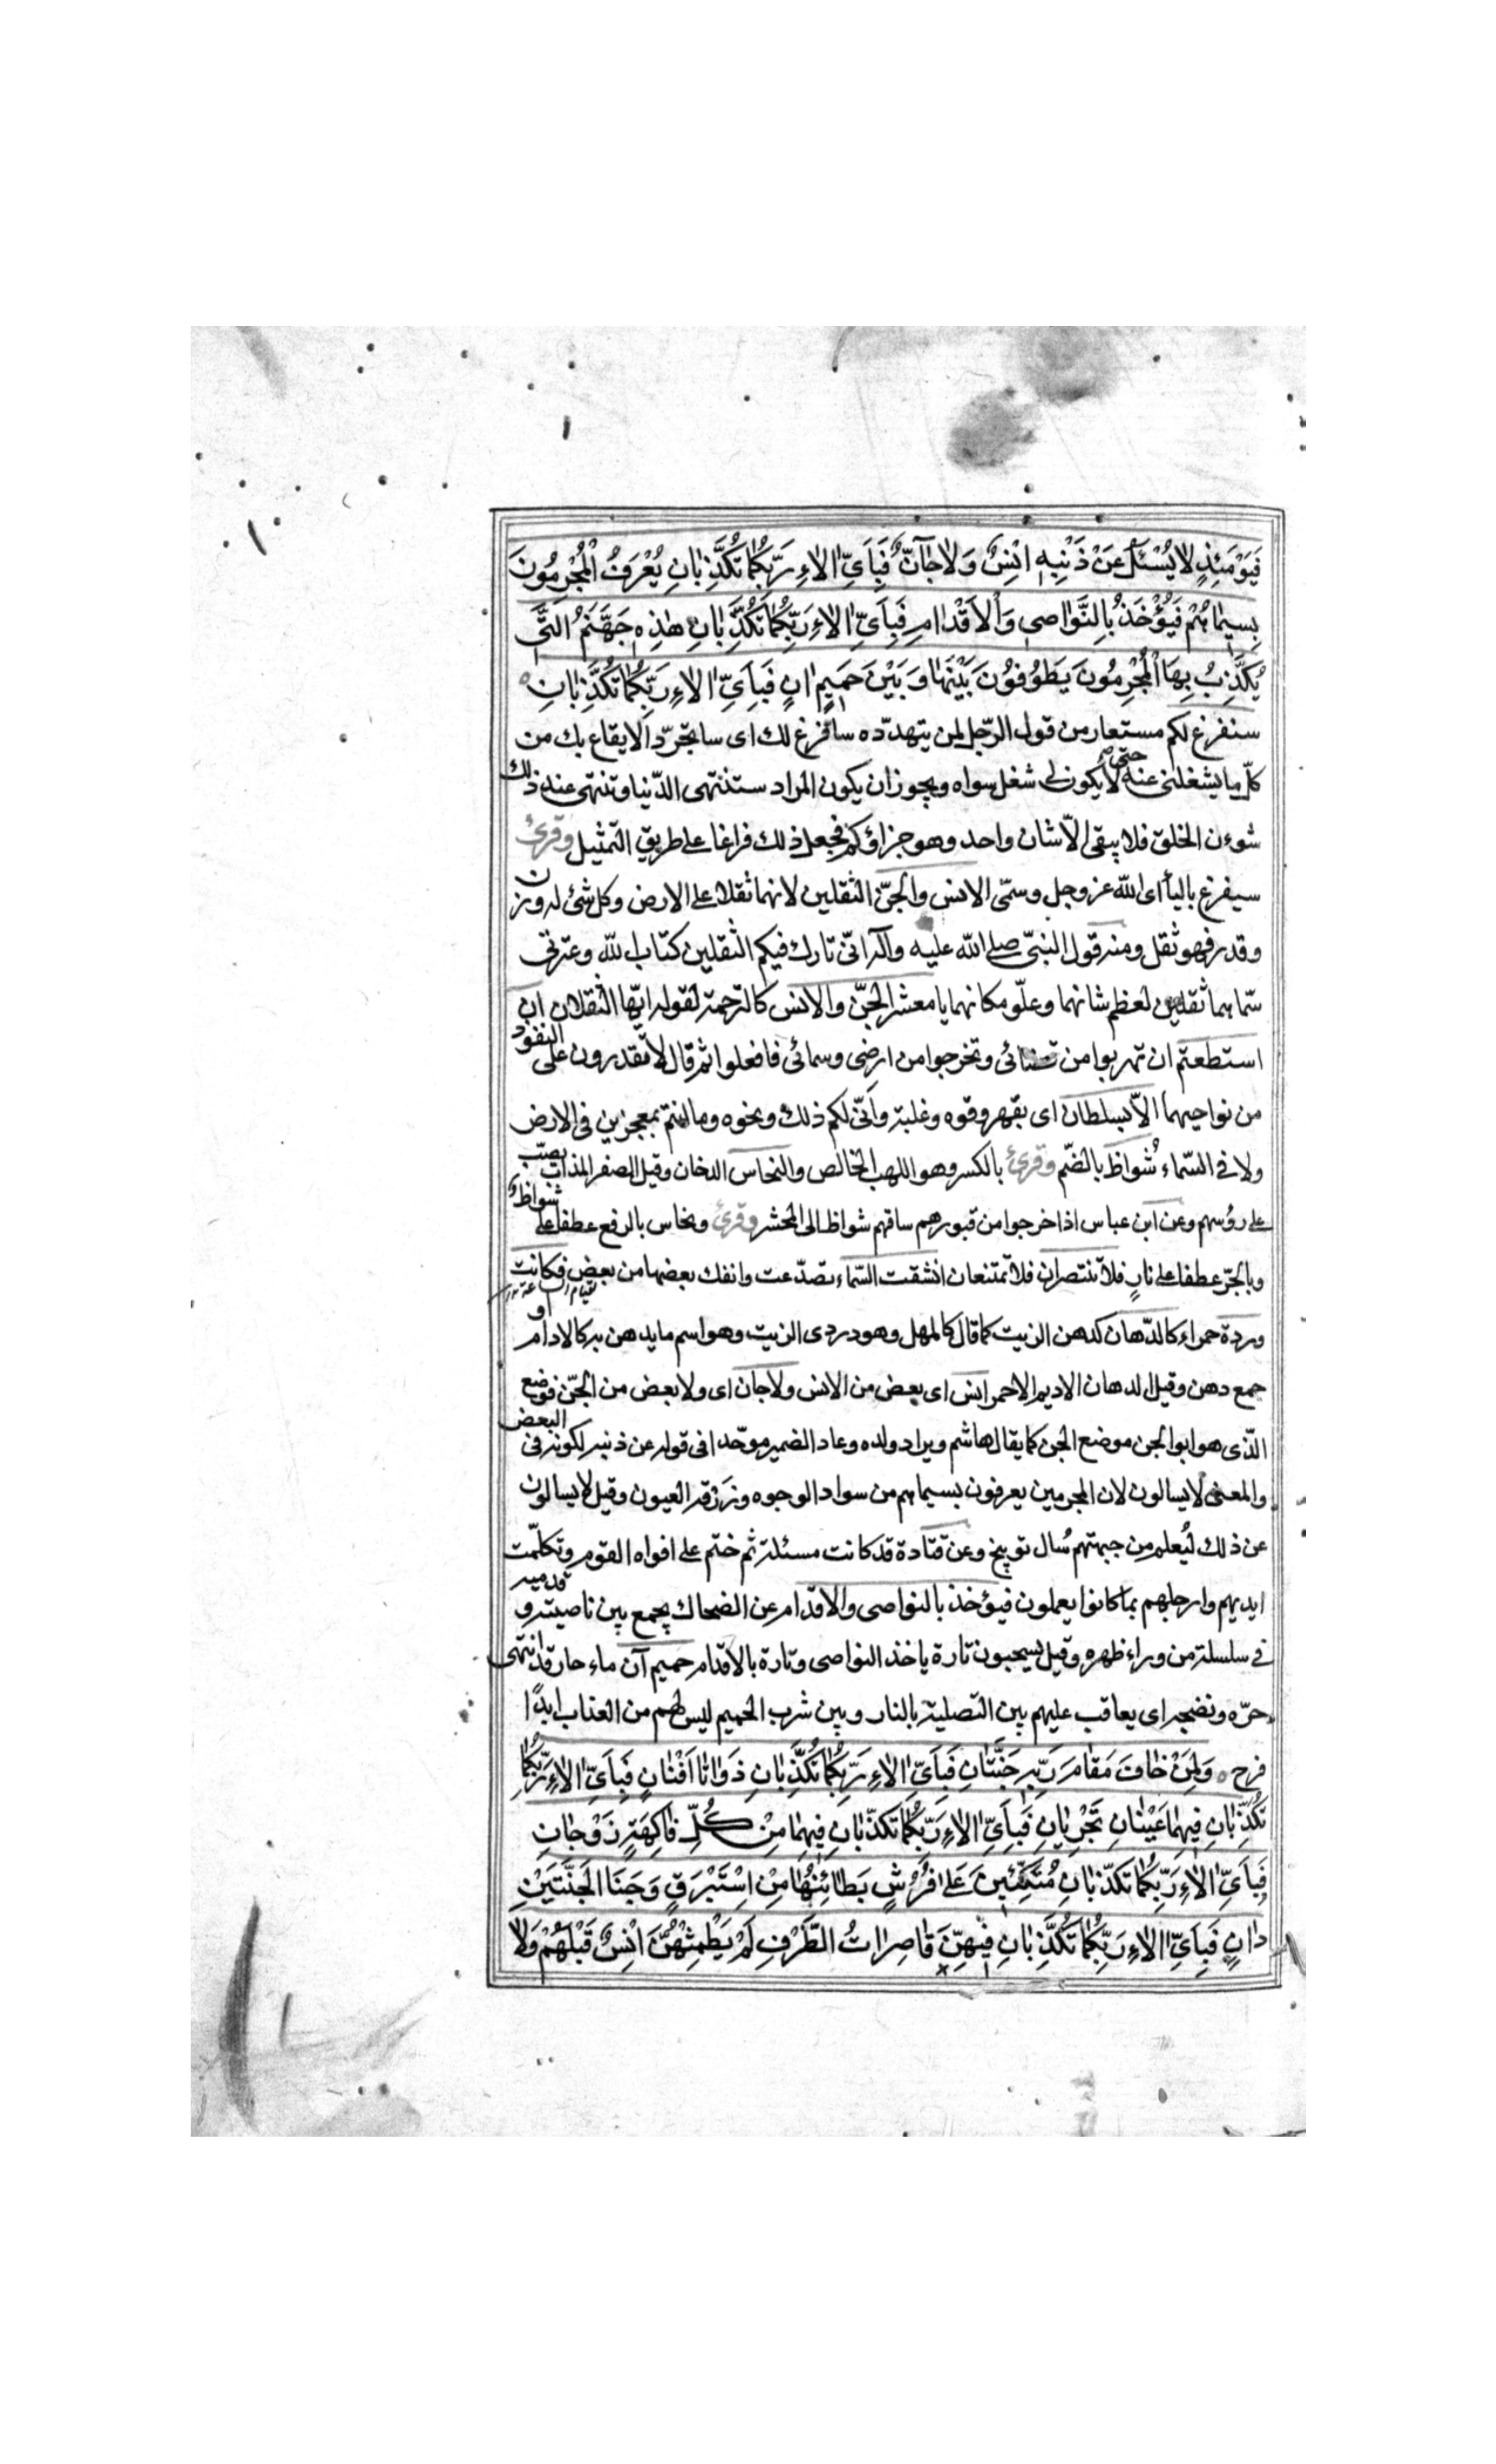 فَيَوْمَئِذٍ لا يُسْئَلُ عَنْ ذَنْبِهِ اِنْسٌ وَلا جٰآنٌّ فَبِاَيِّ الٰاءِ رَبِّكُمٰا تُكَذِّبٰانِ يُعْرَفُ الْمُجْرِمُونَ
بِسِيمٰاهُمْ فَيُؤْخَذُ بِالنَّوٰاصِى وَالْاَقْدٰامِ فَبِاَيِّ الٰاءِ رَبِّكُمٰا تُكَذِّبٰانِ هٰذِهِ جَهَنَّمُ الَّتِى
يُكَذِّبُ بِهَا الْمُجْرِمُونَ يَطُوفُونَ بَيْنَهٰا وَبَيْنَ حَمِيمٍ اٰنٍ فَبِاَيِّ الٰاءِ رَبِّكُمٰا تُكَذِّبٰانِ
سنفرغ لكم مستعار من قول الرّجل لمن يتهدّده سافرغ لك اى ساتجرّد الايقاع بك من
كلّ ما يشغلنى عنه حتى لا يكون لى شغل سواه ويجوز ان يكون المراد ستنتهى الدّنيا وتنتهى عند ذلك
شوءن الخلق فلا يبقى الّا شان واحد وهو جزاؤكم فجعل ذلك فراغا على طريق التمثيل وقرئ
سيفرغ بالياء اى اللّه عز وجل وسمّى الانس والجنّ الثقلين لانهما ثقلا على الارض وكل شئ له وزن
وقدر فهو ثقل ومنه قول النبىّ صلى اللّه عليه وآله انّى تارك فيكم الثقلين كتاب اللّه وعترتى
سمّاهما ثقلين لعظم شانهما وعلّو مكانهما يا معشر الجنّ والانس كالترجمة لقوله ايّها الثقلان ان
استطعتم ان تهربوا من قضائى وتخرجوا من ارضى وسمائى فافعلوا ثم قال لا تقدرون على النفوذ
من نواحيهما الّا بسلطان اى بقهر وقوه وغلبة وانّى لكم ذلك ونحوه وما انتم بمعجزين فى الارض
ولا فى السّماء شُواظ بالضّم وقرئ بالكسر وهو اللهب الخالص والنحاس الدخان وقيل الصفر المذاب يصبّ
على رؤسهم وعن ابن عباس اذا خرجوا من قبورهم ساقهم شواظ الى المحشر وقرئ ونحاس بالرفع عطفا على شواظ
وبالجرّ عطفا على نارٍ فلا تنتصران فلا تمتنعان انشقت السّماء تصدّعت وانفك بعضها من بعض فكانت
وردة حمراء كالدّهان كدهن الزيت كما قال كالمهل وهو دردى الزيت وهو اسم ما يدهن به كالادام او
جمع دهن وقيل الدهان الاديم الاحمر انس اى بعض من الانس ولا جان اى ولا بعض من الجنّ فوضع
الذّى هو ابو الجن موضع الجن كما يقال هاشم ويراد ولده وعاد الضمير موحّدا فى قوله عن ذنبه لكونه فى البعض
والمعنى لا يسالون لان المجرمين يعرفون بسيماهم من سواد الوجوه وزرقة العيون وقيل لا يسالون
عن ذلك ليُعلم من جهتهم سُال توبيخ وعن قتادة قد كانت مسئلة ثم ختم على افواه القوم وتكلّمت
ايديهم وارجلهم بما كانوا يعملون فيؤخذ بالنواصى والاقدام عن الضحاك يجمع بين ناصيته و قدميه
فى سلسلة من وراء ظهره وقيل يسحبون تارة ياخذ النواصى وتارة بالاقدام حميم آن ماء حار قد انتهى
حرّه ونضجه اى يعاقب عليهم بين التصلية بالنار وبين شرب الحميم ليس لهم من العذاب ابدًا
فرح وَلِمَنْ خٰافَ مَقٰامَ رَبِّهِ جَنَّتٰانِ فَبِاَيِّ الٰاءِ رَبِّكُمٰا تُكَذِّبٰانِ ذَوٰاتٰا اَفْنٰانٍ فَبِاَيِّ الٰاءِ رَبِّكُمٰا
تُكَذِّبٰانِ فِيهِمٰا عَيْنٰانِ تَجْرِيٰانِ فَبِاَيِّ الٰاءِ رَبِّكُمٰا تكَذّبٰانِ فِيهِمٰا مِنْ كُلِّ فٰاكِهَةٍ زَوْجٰانِ
فَبِاَيِّ الٰاءِ رَبِّكُمٰا تكَذّبٰانِ مُتَّكِئِينَ عَلىٰ فُرُشٍ بَطٰائِنُهٰا مِنْ اِسْتَبْرَقٍ وَجَنَا الْجَنَّتَيْنِ
دٰانٍ فَبِاَيِّ الٰاءِ رَبِّكُمٰا تُكَذِّبٰانِ فِيهِنَّ قٰاصِرٰاتُ الطَّرْفِ لَمْ يَطْمِثْهُنَّ اِنْسٌ قَبْلَهُمْ وَلا